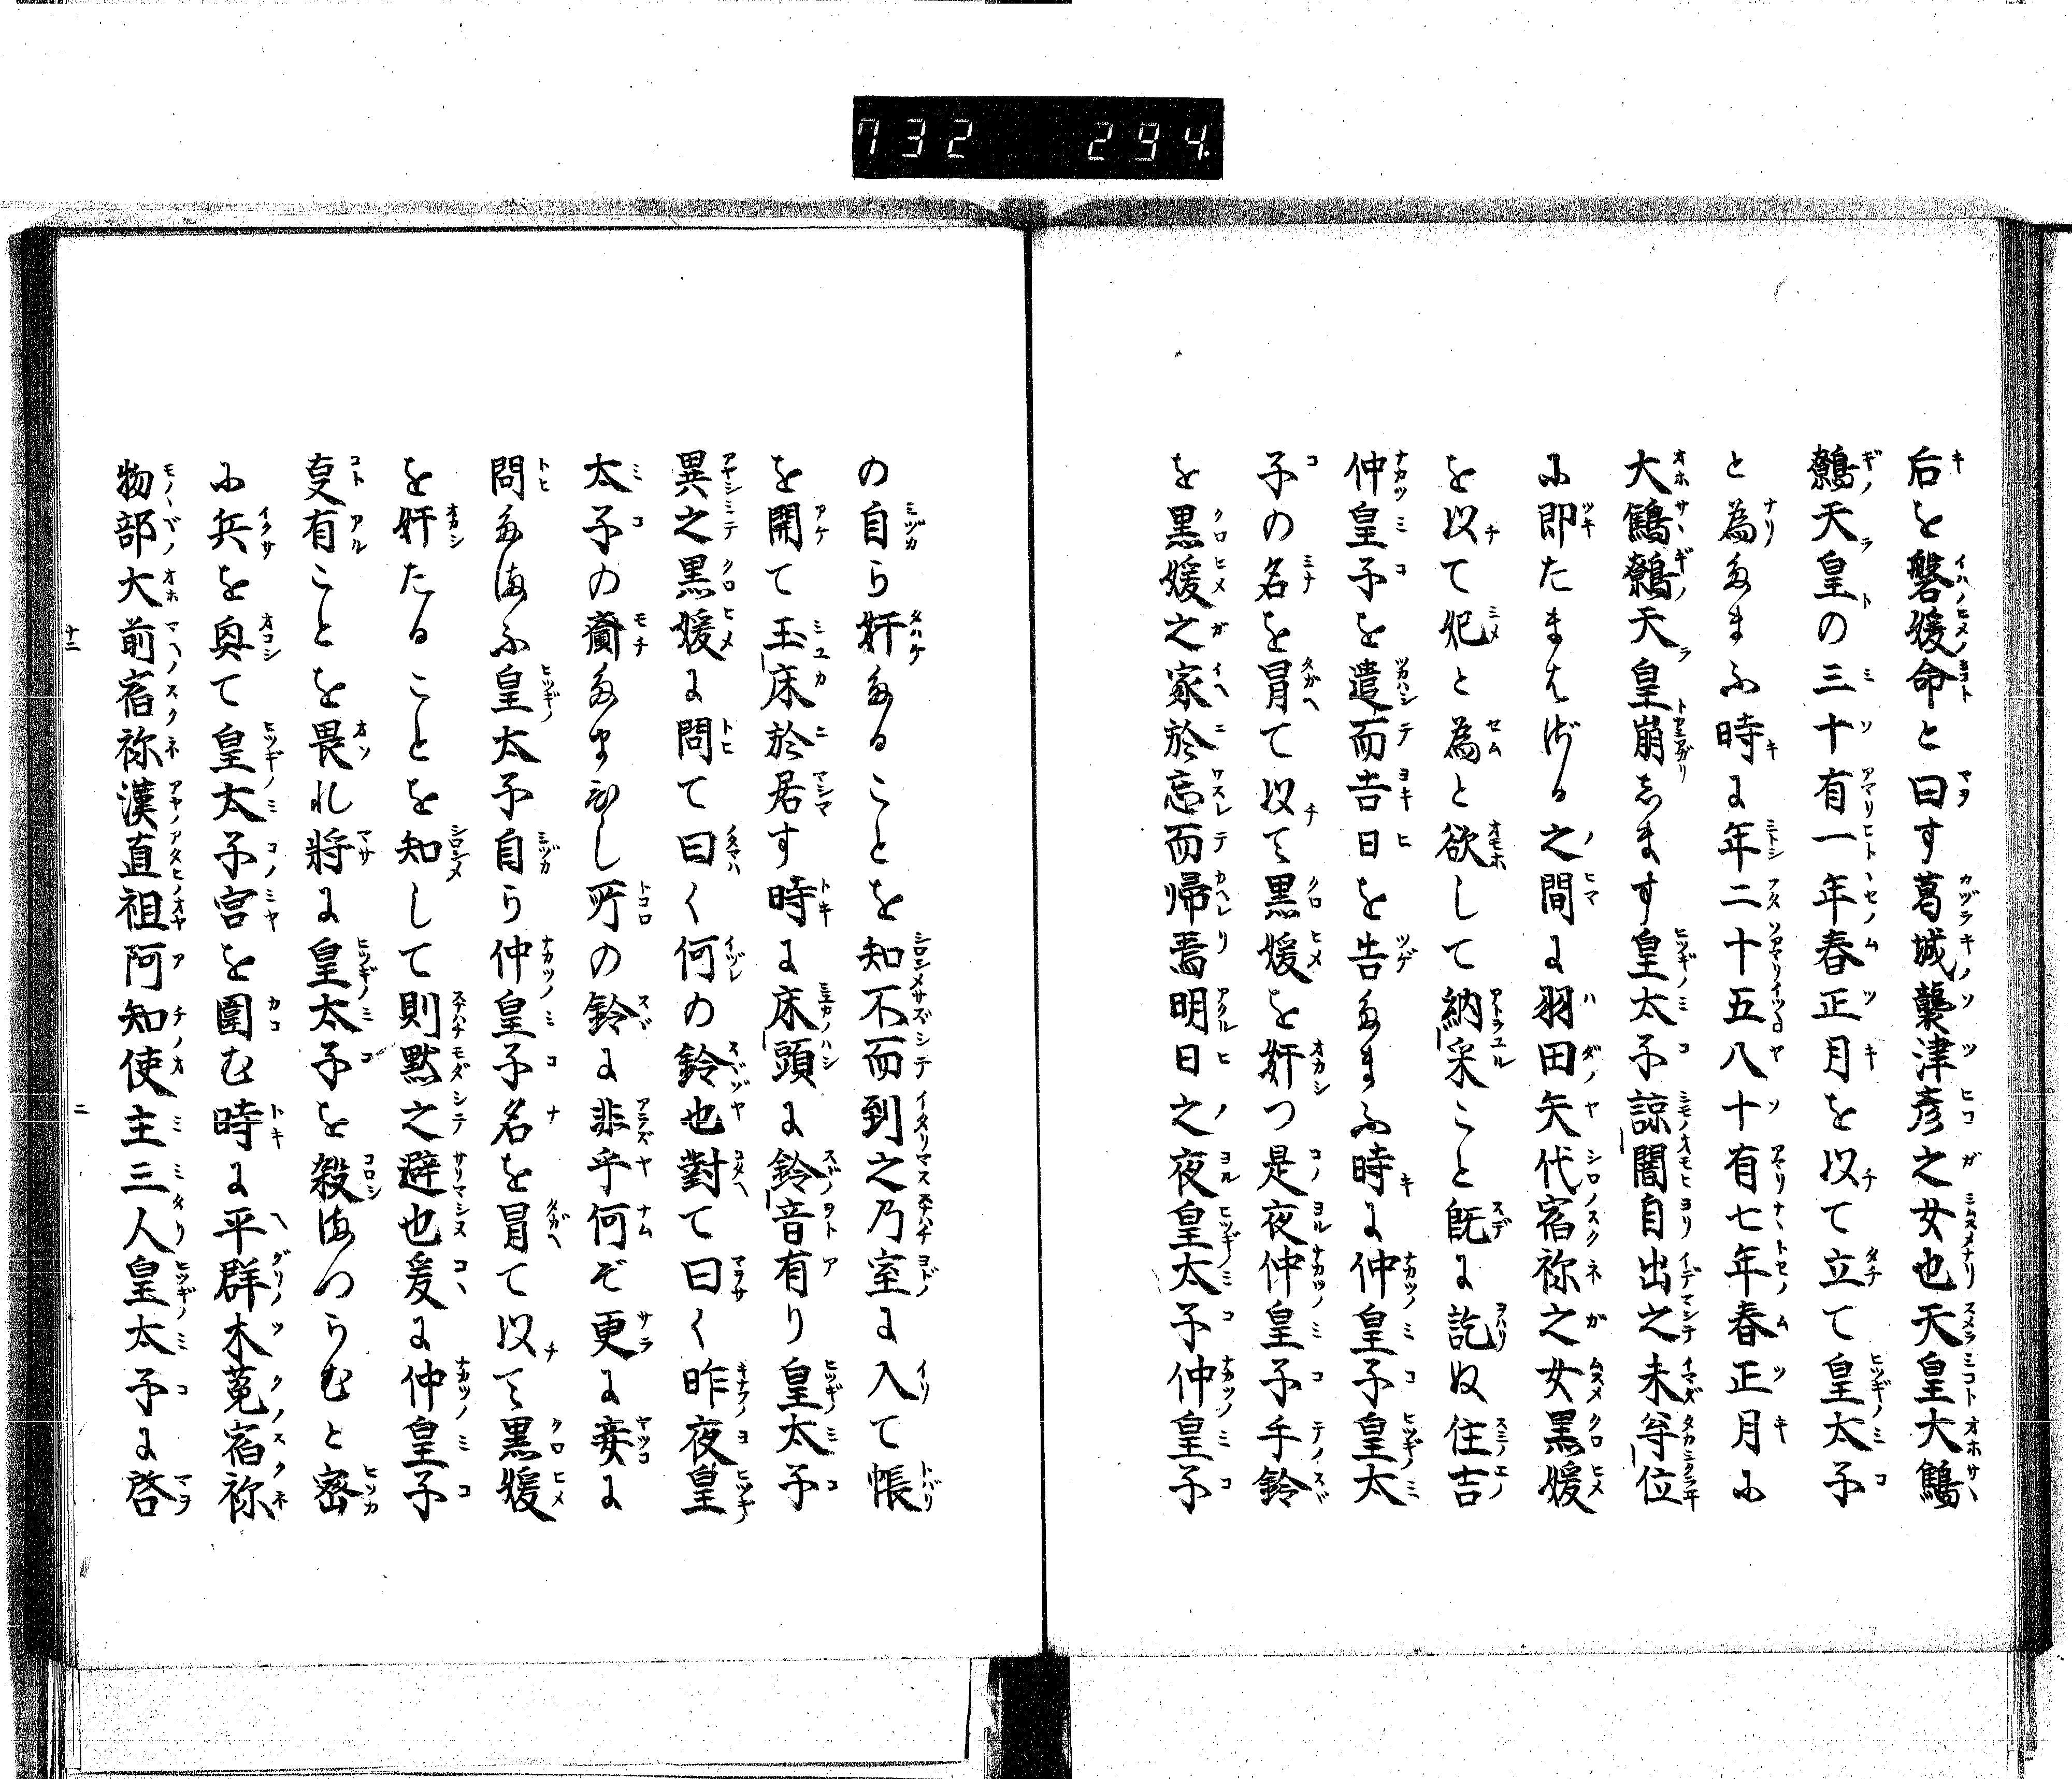 732 294.
后を磐媛命と曰す葛城襲津彦之女也天皇大鷦
鷯天皇の三十有一年春正月を以て立て皇太子
と為たまふ時に年二十五八十有七年春正月に
大鷦鷯天皇崩ます皇太子諒闇自出之未等位
に即たまはざる之間に羽田矢代宿祢之女黒媛
を以て妃と為と欲して納采こと既に訖ぬ住吉
仲皇子を遣而吉日を告たまふ時に仲皇子皇太
子の名を冒て以て黒媛を奸つ是夜仲皇子手鈴
を黒媛之家於忘而帰焉明日之夜皇太子仲皇子
の自ら奸たることを知不而到之乃室に入て帳
を開て玉床於居す時に床頭に鈴音有り皇太子
異之黒媛に問て曰く何の鈴也對て曰く昨夜皇
太子の齎たまひし所の鈴に非乎何ぞ更に妾に
問たまふ皇太子自ら仲皇子名を冒て以て黒媛
を奸たることを知して則黙之避也爰に仲皇子
事有ことを畏れ将に皇太子を殺まつらむと密
に兵を興て皇太子宮を圍む時に平群木菟宿祢
物部大前宿祢漢直祖阿知使主三人皇太子に啓
十二 二